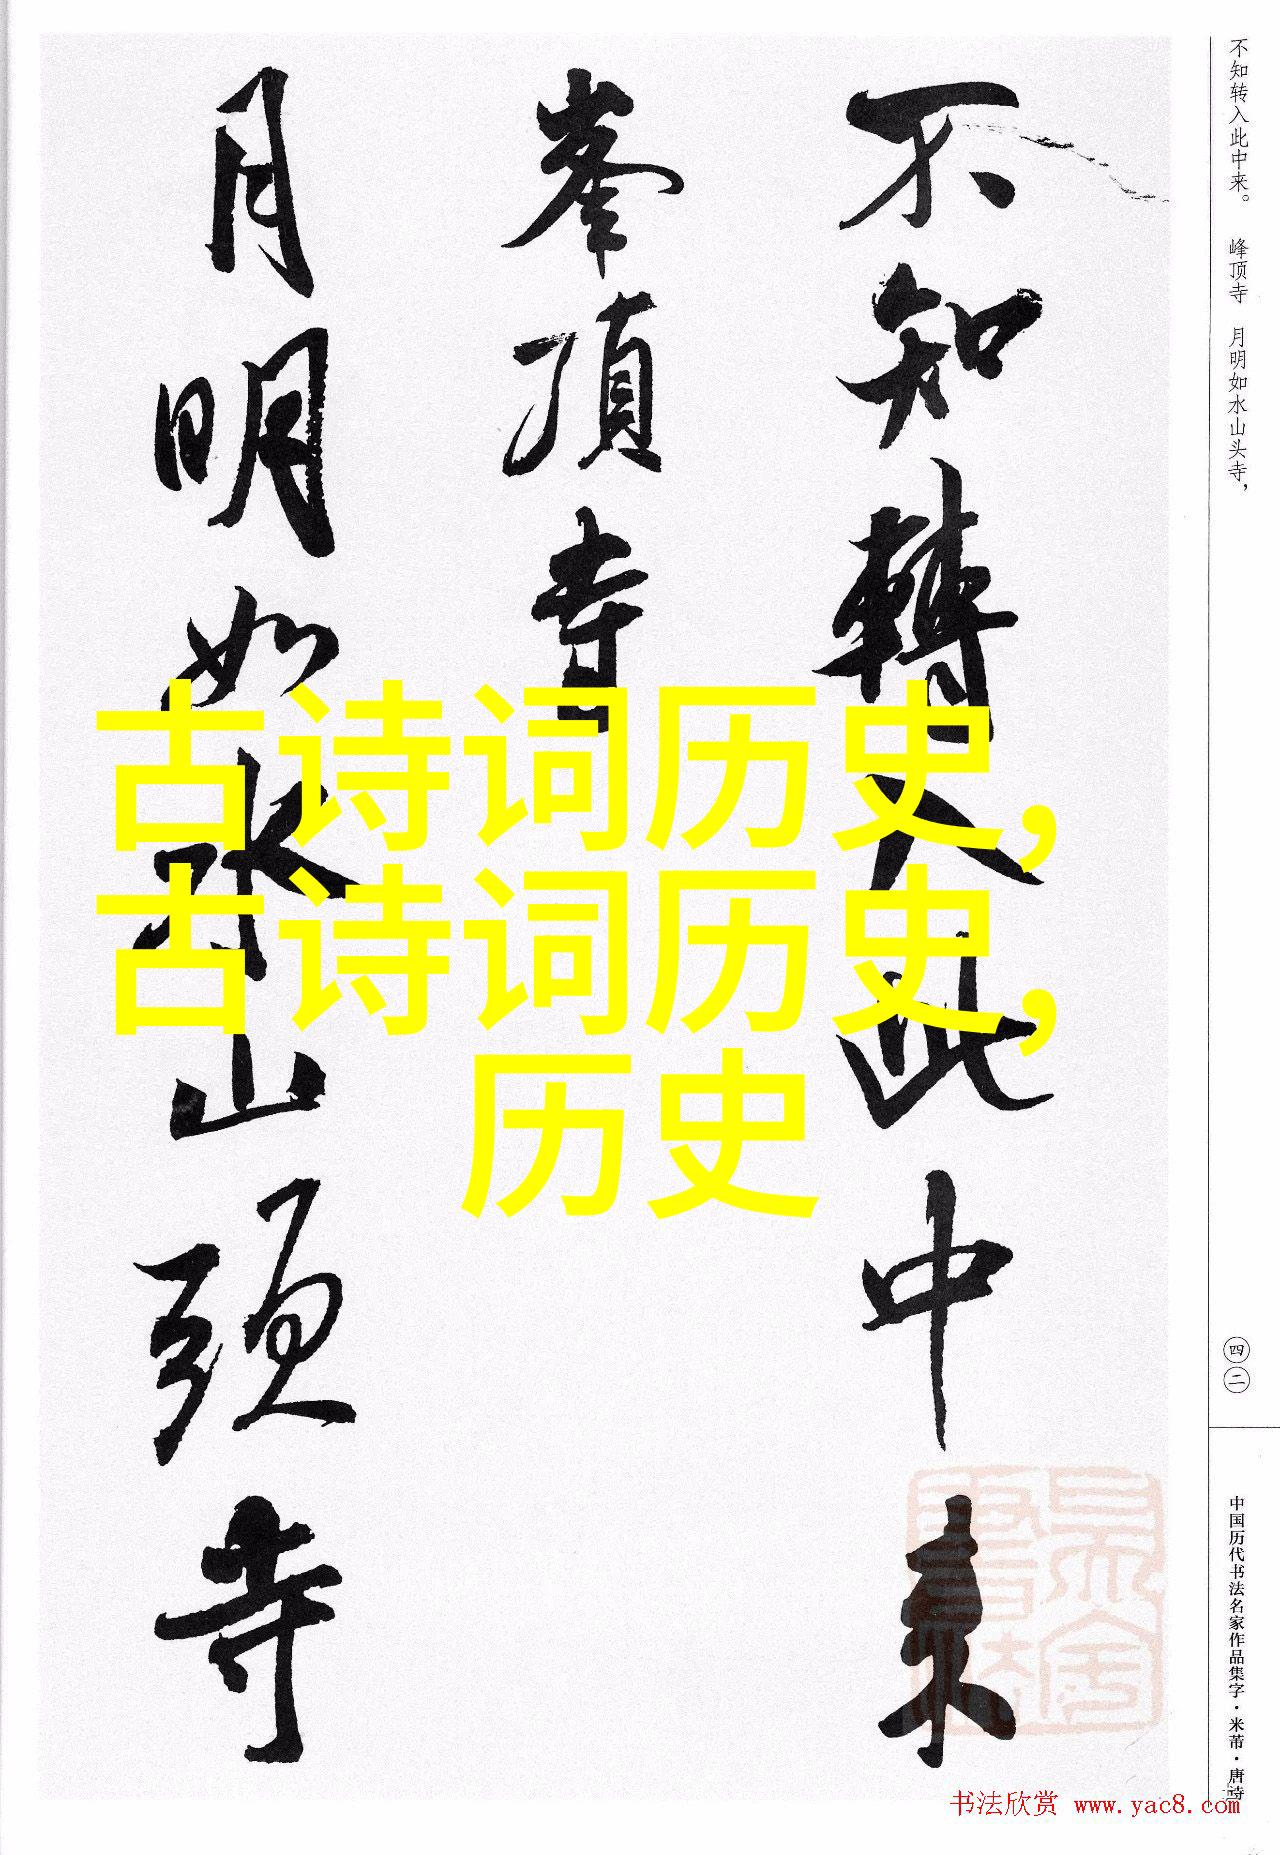 不知转入此中来。 峰顶寺 月明如水山头寺，
不知轉入此中来
峯頂寺
月明如水山頭寺
古诗词历史,
古诗词历史,
历史
四二
中国历代书法名家作品集字·米芾·唐诗
书法欣赏 www.yac8.com